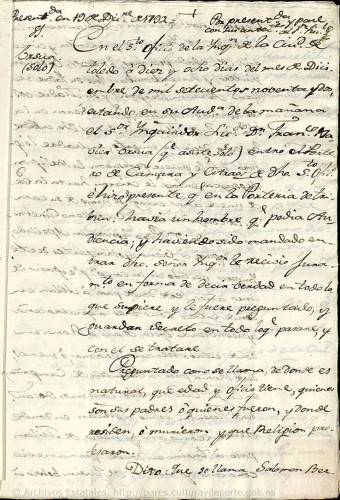 Present.da en 19 de Dic.re de 1792 =
Por present.da y pase
El
con
Orsua
(solo)
En el S.to ofi.o de la Inq.n de la Ciu.d de
toledo à Diez y ocho dias del mes de Dici
embre de mil setecientos noventa y dos,
estando en su Aud.a de la mañana
el S.or Inquisidor Liz.do D.n Fran.co
Orsua (q.e asiste solo) entrò el Porte
ro de Camara y Estrados de dho. S.to Ofi.o
è hizo presente q.e en la Porteria de la
havia un hombre q.e pedia Au
diencia; y haviendo sido mandado en
trar dho. Señor Inq.or le recivio jura
m.to en forma de decir verdad en todo lo
que supiere y le fuere preguntado, y
guardar secreto en todo lo q.e pasare, y
con el se tratare
Preguntado como se llama, de donde es
natural, que edad y oficio tiene, quienes
son sus padres ò quienes fueron, y donde
residen, ò murieron y que Religion pro
fesaron.
Dixo: Que se llama Salomon Ber
© Archivos Estatales - http://pares.culturaydeporte.gob.es